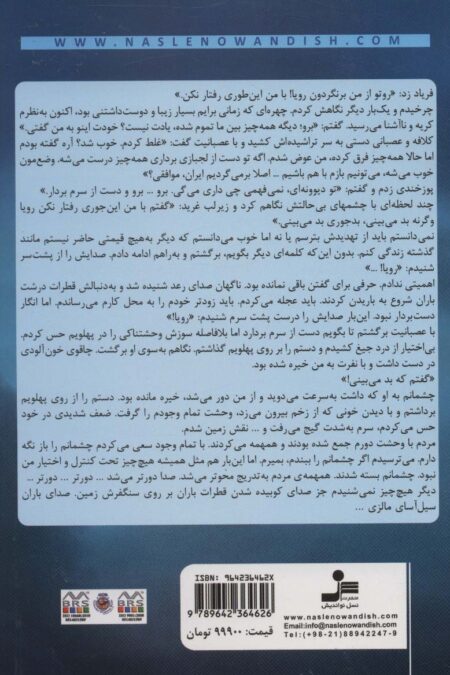 WWW.NASLENOWANDISH.COM
فریاد زد: «روتو از من برنگردون رویا! با من این‌طوری رفتار نکن.»
چرخیدم و یک‌بار دیگر نگاهش کردم. چهره‌ای که زمانی برایم بسیار زیبا و دوست‌داشتنی بود، اکنون به‌نظرم
کریه و ناآشنا می‌رسید. گفتم: «برو؛ دیگه همه‌چیز بین ما تموم شده، یادت نیست؟ خودت اینو به من گفتی.»
کلافه و عصبانی دستی به سر تراشیده‌اش کشید و با عصبانیت گفت: «غلط کردم. خوب شد؟ آره گفته بودم
اما حالا همه‌چیز فرق کرده، من عوض شدم. اگه تو دست از لجبازی برداری همه‌چیز درست می‌شه. وضع‌مون
خوب می‌شه، می‌تونیم بازم با هم باشیم ... اصلا برمی‌گردیم ایران، موافقی؟»
پوزخندی زدم و گفتم: «تو دیوونه‌ای، نمی‌فهمی چی داری می‌گی. برو ... برو و دست از سرم بردار.»
چند لحظه‌ای با چشمهای بی‌حالتش نگاهم کرد و زیرلب غرید: «گفتم با من این‌جوری رفتار نکن رویا
وگرنه بد می‌بینی، بدجوری بد می‌بینی.»
نمی‌دانستم باید از تهدیدش بترسم یا نه اما خوب می‌دانستم که دیگر به‌هیچ قیمتی حاضر نیستم مانند
گذشته زندگی کنم. بدون این‌که کلمه‌ای دیگر بگویم، برگشتم و به‌راهم ادامه دادم. صدایش را از پشت‌سر
شنیدم: «رویا! ...»
اهمیتی ندادم. حرفی برای گفتن باقی نمانده بود. ناگهان صدای رعد شنیده شد و به‌دنبالش قطرات درشت
باران شروع به باریدن کردند. باید عجله می‌کردم. باید زودتر خودم را به محل کارم می‌رساندم. اما انگار
دست‌بردار نبود. این‌بار صدایش را درست پشت سرم شنیدم: «رویا!»
با عصبانیت برگشتم تا بگویم دست از سرم بردارد اما بلافاصله سوزش وحشتناکی را در پهلویم حس کردم.
بی‌اختیار از درد جیغ کشیدم و دستم را بر روی پهلویم گذاشتم. نگاهم به‌سوی او برگشت. چاقوی خون‌آلودی
در دست داشت و با نفرت به من خیره شده بود.
«گفتم که بد می‌بینی!»
چشمانم به او که داشت به‌سرعت می‌دوید و از من دور می‌شد، خیره مانده بود. دستم را از روی پهلویم
برداشتم و با دیدن خونی که از زخم بیرون می‌زد، وحشت تمام وجودم را گرفت. ضعف شدیدی در خود
حس می‌کردم، سرم به‌شدت گیج می‌رفت و ... نقش زمین شدم.
مردم با وحشت دورم جمع شده بودند و همهمه می‌کردند. با تمام وجود سعی می‌کردم چشمانم را باز نگه
دارم. می‌ترسیدم اگر چشمانم را ببندم، بمیرم. اما این‌بار هم مثل همیشه هیچ‌چیز تحت کنترل و اختیار من
نبود. چشمانم بسته شدند. همهمه‌ی مردم به‌تدریج محوتر می‌شد. صدا دورتر می‌شد ... دورتر ... دورتر ...
دیگر هیچ‌چیز نمی‌شنیدم جز صدای کوبیده شدن قطرات باران بر روی سنگفرش زمین. صدای باران
سیل‌آسای مالزی ...
ISBN: 964236462X
9 789642 364626
قیمت: ۹۹۹۰۰ تومان
نسل نواندیش
www.naslenowandish.com
Email:info@naslenowandish.com
Tel:(+98-21)88942247-9
BRS
BRS